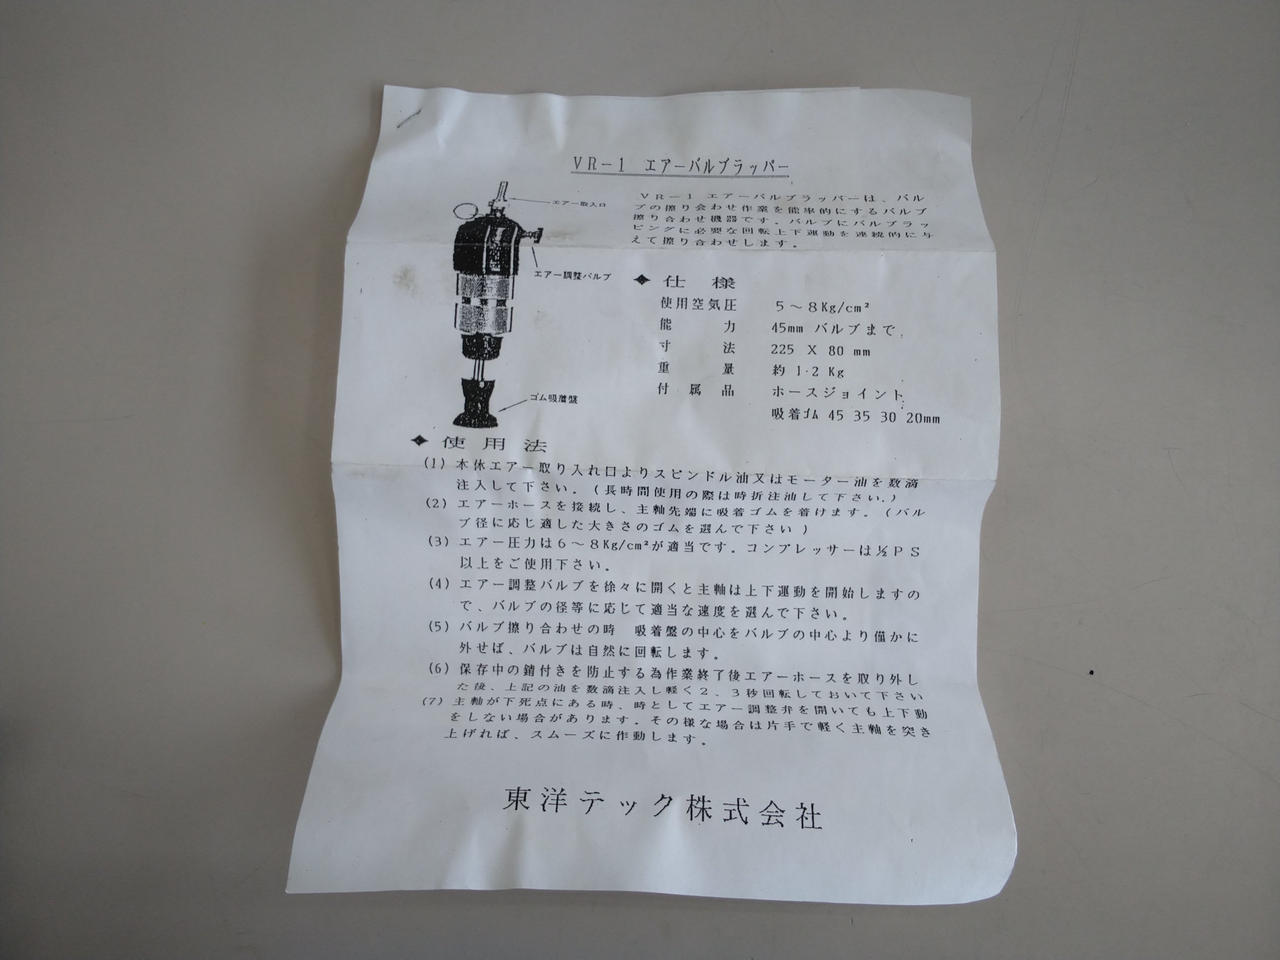 VR-1 エアーバルブラッパー
エアー取入口
エアー調整バルブ
ゴム吸着盤
VR-1 エアーバルブラッパーは、バル
ブの擦り会わせ作業を能率的にするバルブ
擦り合わせ機器です。バルブにバルブラッ
ピングに必要な回転上下運動を連続的に与
えて擦り合わせします。
◆ 仕様
使用空気圧 5～8Kg/cm²
能力 45mm バルブまで
寸法 225 X 80 mm
重量 約1.2 Kg
付属品 ホースジョイント
吸着ゴム 45 35 30 20mm
◆ 使用法
(1) 本体エアー取り入れ口よりスピンドル油又はモーター油を数滴
注入して下さい。(長時間使用の際は時折注油して下さい.)
(2) エアーホースを接続し、主軸先端に吸着ゴムを着けます。(バル
ブ径に応じ適した大きさのゴムを選んで下さい)
(3) エアー圧力は6～8Kg/cm²が適当です。コンプレッサーは½PS
以上をご使用下さい。
(4) エアー調整バルブを徐々に開くと主軸は上下運動を開始しますの
で、バルブの径等に応じて適当な速度を選んで下さい。
(5) バルブ擦り合わせの時 吸着盤の中心をバルブの中心より僅かに
外せば、バルブは自然に回転します。
(6) 保存中の錆付きを防止する為作業終了後エアーホースを取り外し
た後、上記の油を数滴注入し軽く2、3秒回転しておいて下さい
(7) 主軸が下死点にある時、時としてエアー調整弁を開いても上下動
をしない場合があります。その様な場合は片手で軽く主軸を突き
上げれば、スムーズに作動します。
東洋テック株式会社